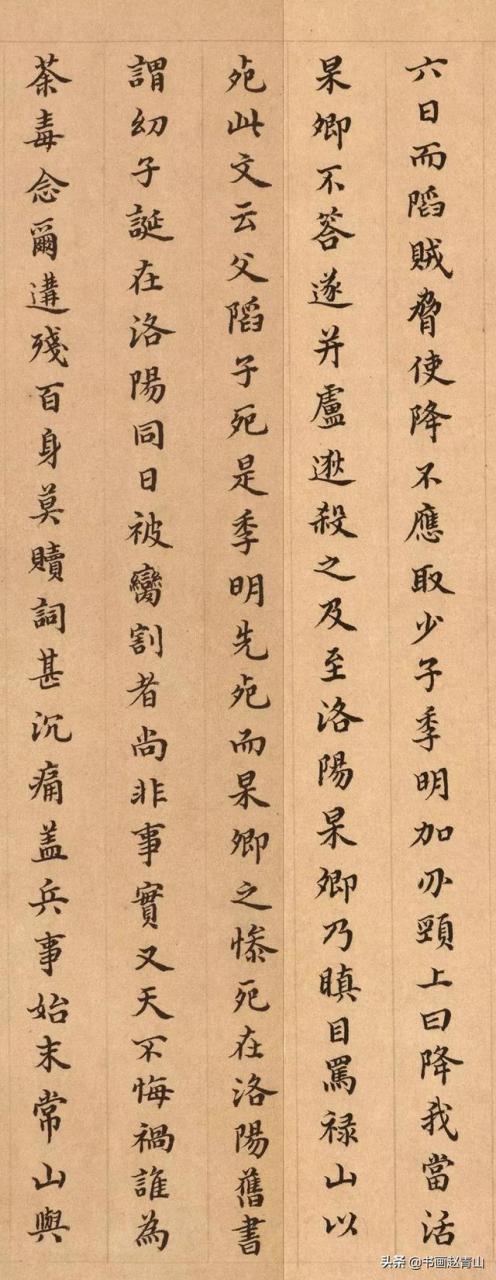 六日而䧟賊脅使降不應取少子季明加刅頸上曰降我當活
杲卿不荅遂并盧逖殺之及至洛陽杲卿乃瞋目罵禄山以
死此文云父䧟子死是季明先死而杲卿之惨死在洛陽舊書
謂幼子誕在洛陽同日被臠割者尚非事實又天不悔禍誰為
荼毒念爾遘殘百身莫贖詞甚沉痛盖兵事始末常山與
头条 @书画赵青山